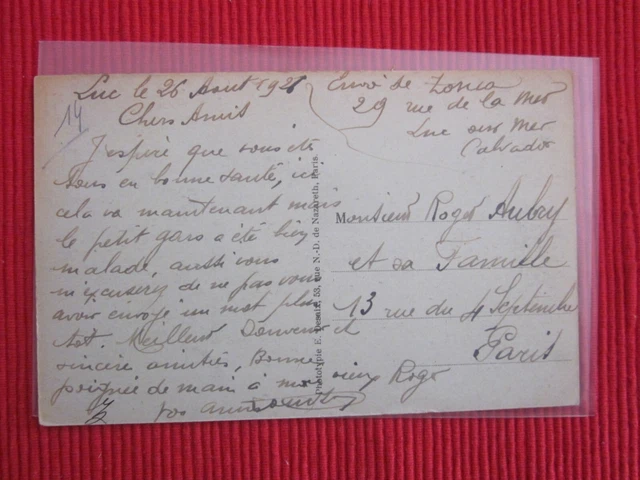 Luc le 26 Aout 192
Chers Amis
J'espère que vous ete
tous en bonne santé, ici
cela va maintenant mais
le petit gars a été bien
malade, aussi vous
m'excuserez de ne pas vous
avoir envoyé un mot plus
tot. Meilleur Souvenir et
sincire amitiés, Bonne
poignée de main à mon vieux Roger
vos amis
14
Envoi de
29 rue de la Mer
Luc sur Mer
Calvados
Monsieur Roger Aubry
et sa Famille
13 rue du 4 Septembre
Paris
Phototypie E. Desaix, 53, rue N.-D. de Nazareth, Paris.